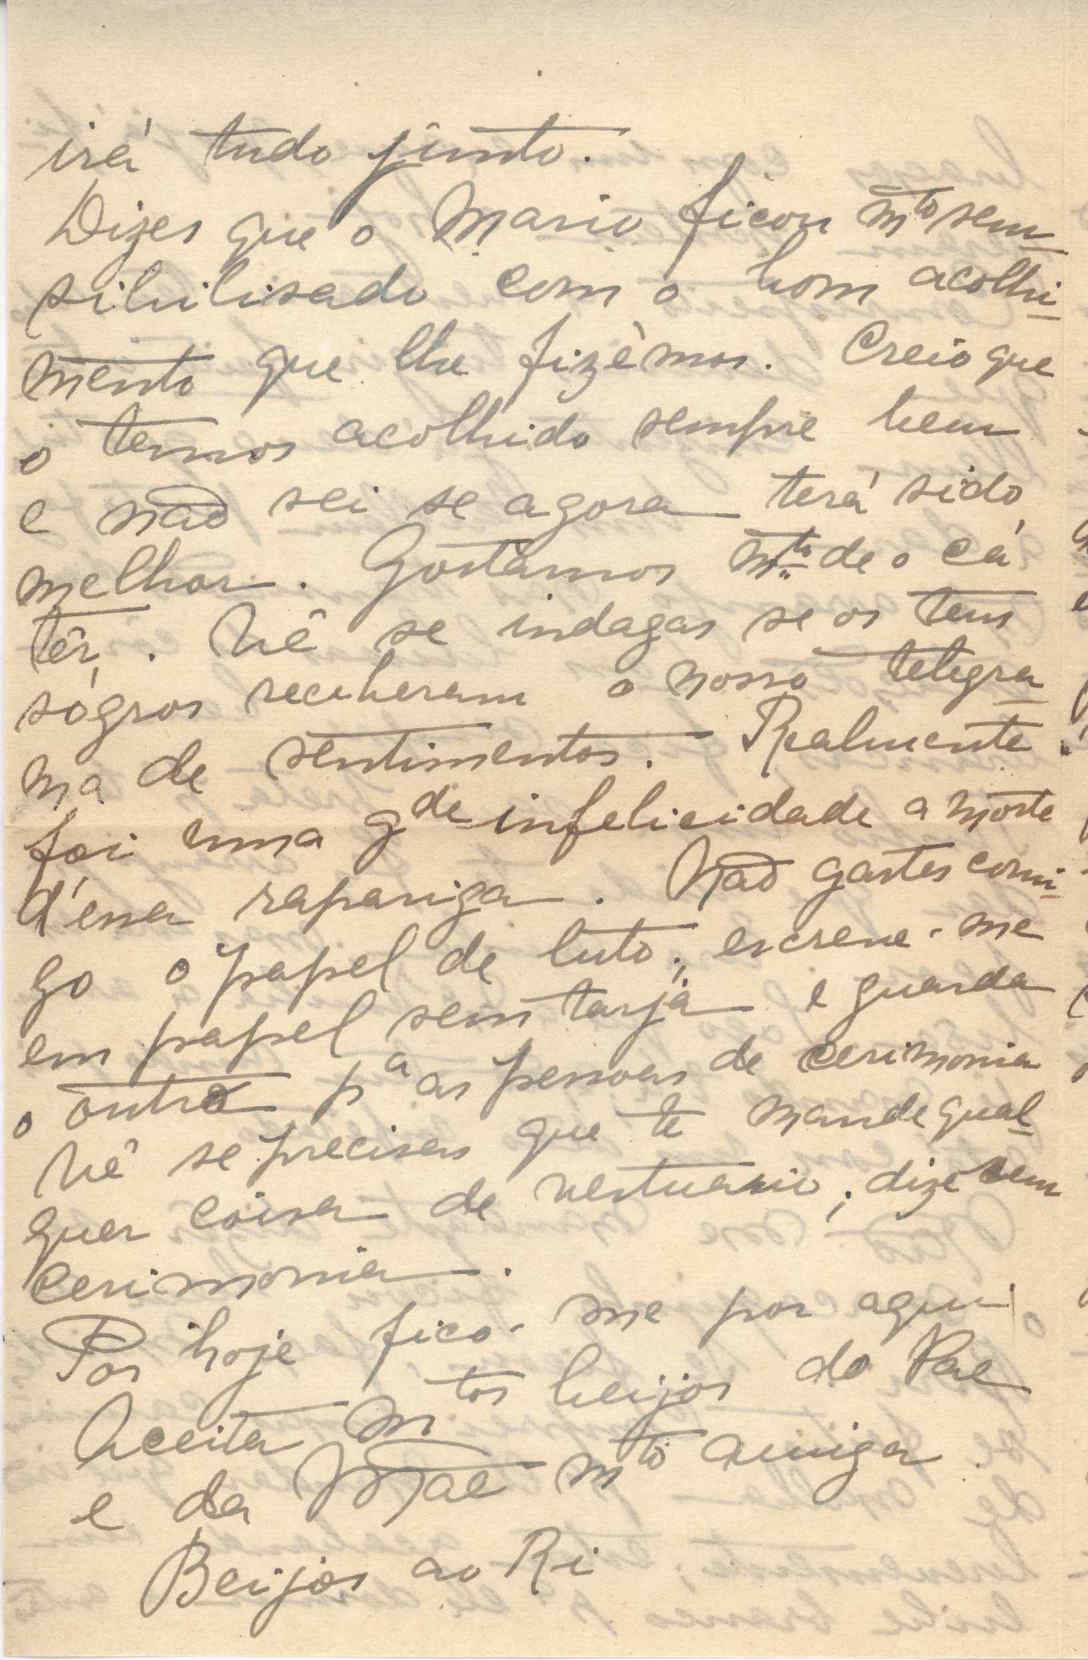 irá tudo junto.
Dizes que o Mario ficou mto sen-
sibilisado com o bom acolhi-
mento que lhe fizémos. Creio que
o temos acolhido sempre bem
e não sei se agora terá sido
melhor. Gostámos mto de o cá
têr. Vê se indagas se os teus
sógros receberam o nosso telegra-
ma de sentimentos. - Realmente
foi uma gde infelicidade a morte
d'essa rapariga. Não gastes comi-
go o papel de luto; escreve-me
em papel sem tarja e guarda
o outro pa as pessoas de cerimonia
Vê se precisas que te mande qual-
quer coisa de vestuario; dize sem
cerimonia.
Por hoje fico-me por aqui
Aceita mtos beijos do Pae
e da Mãe mto amiga.
Beijos ao Ri